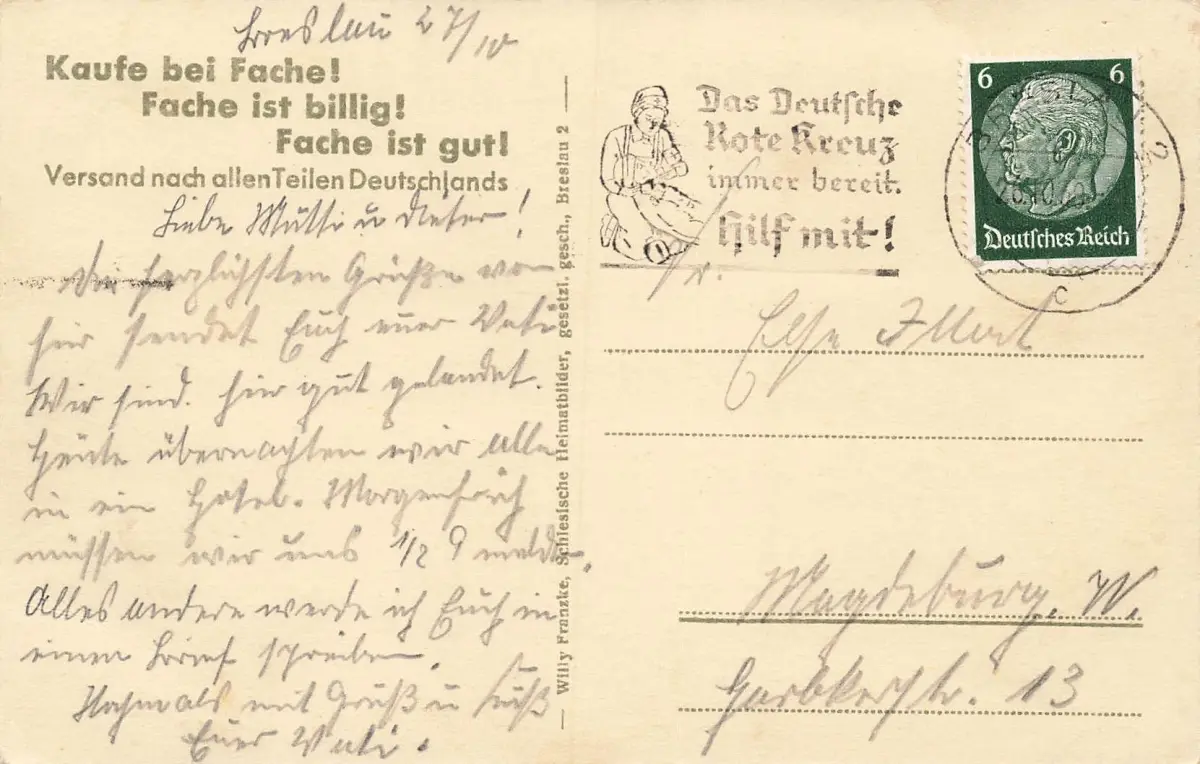 Breslau 27/10
Kaufe bei Fache!
Fache ist billig!
Fache ist gut!
Versand nach allen Teilen Deutschlands
Liebe Mutti u Dieter!
Die herzlichsten Grüße von
hir sendet Euch euer Vati
Wir sind. hir gut gelandet.
Heute übernachten wir alle
in ein Hotel. Morgenfrüh
müssen wir uns 1/2 9 melden.
Alles andere werde ich Euch in
einen Brief schreiben.
Nochmals mit Gruß u Kuß
Euer Vati.
Willy Franzke, Schlesische Heimatbilder, gesetzl. gesch., Breslau 2
Das Deutsche
Rote Kreuz
immer bereit.
Hilf mit!
6 6
Deutsches Reich
BRESLAU 2
c
Fr.
Else
Magdeburg. W.
13